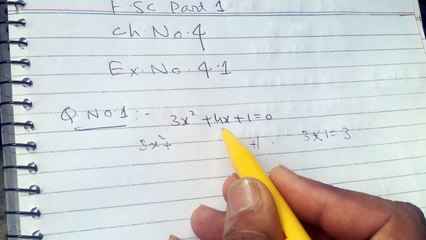 F.SC Part 1
Ch No.4
Ex.No.4.1
Q NO.1:- 3x²+4x+1=0
3x²+ +1. 3×1=3